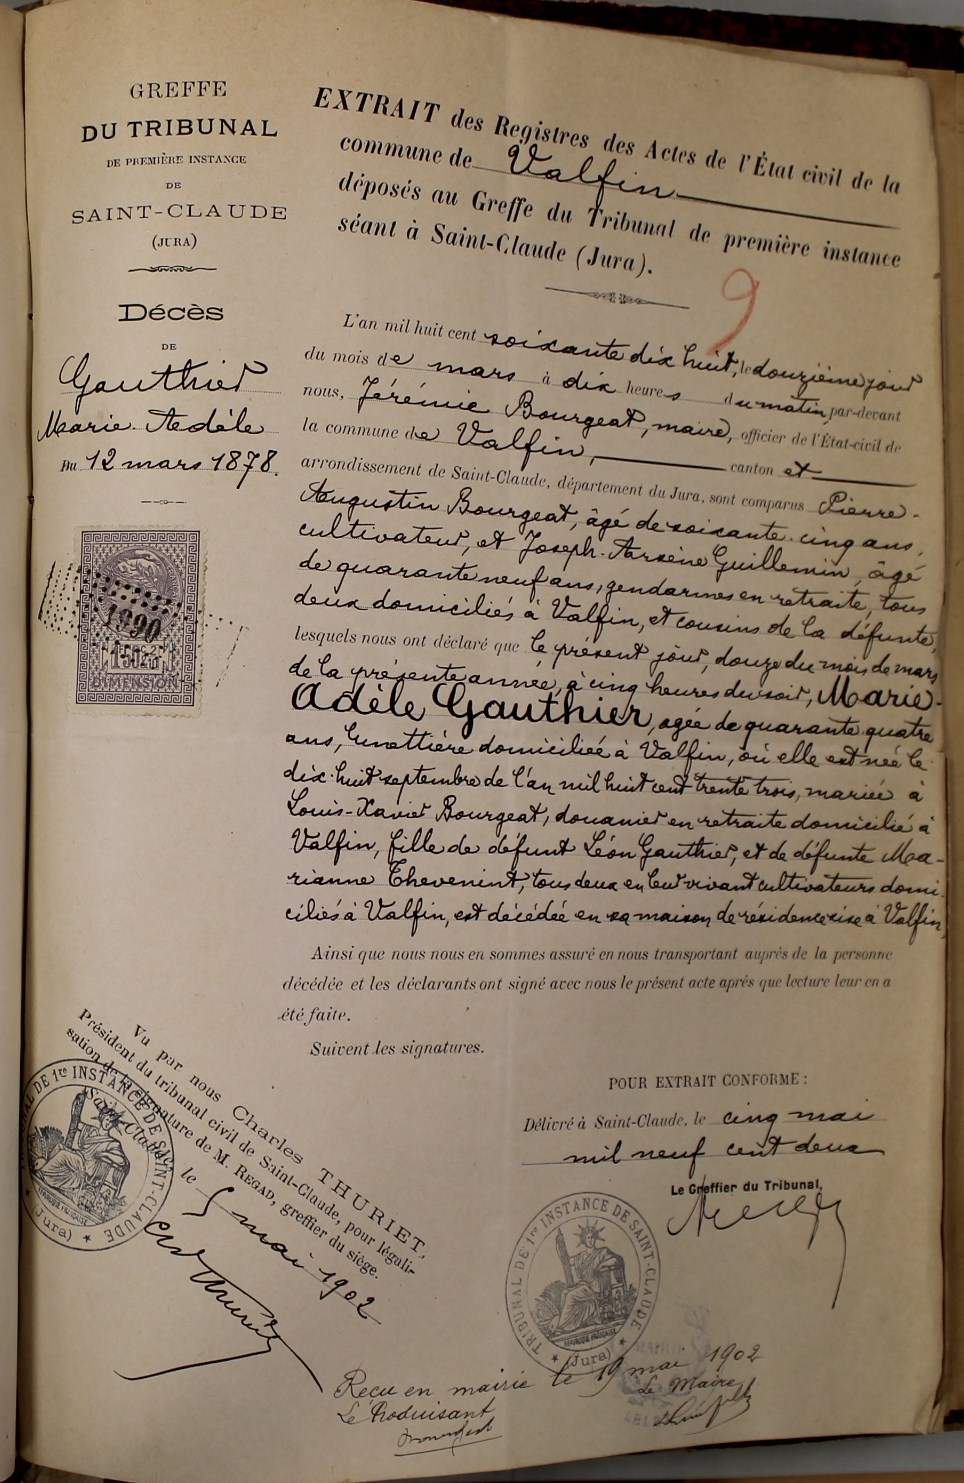 GREFFE
DU TRIBUNAL
DE PREMIÈRE INSTANCE
DE
SAINT-CLAUDE
(JURA)
Décès
DE
Gauthier
Marie-Adèle
Du 12 mars 1878.
1890
1F50C
DIMENSION
EXTRAIT des Registres des Actes de l'État civil de la
commune de Valfin
déposés au Greffe du Tribunal de première instance
séant à Saint-Claude (Jura).
9
L'an mil huit cent soixante dix huit, le douzième jour
du mois de mars à dix heures du matin par-devant
nous, Jérémie Bourgeat, maire, officier de l'État-civil de
la commune de Valfin, canton et
arrondissement de Saint-Claude, département du Jura, sont comparus Pierre-
Augustin Bourgeat, âgé de soixante-cinq ans,
cultivateur, et Joseph-Arsène Guillemin, âgé
de quarante neuf ans, gendarmes en retraite, tous
deux domiciliés à Valfin, et cousins de la défunte,
lesquels nous ont déclaré que le présent jour, douze du mois de mars
de la présente année, à cinq heures du soir, Marie-
Adèle Gauthier, agée de quarante quatre
ans, lunettière domiciliée à Valfin, où elle est née le
dix-huit septembre de l'an mil huit cent trente trois, mariée à
Louis-Xavier Bourgeat, douanier en retraite domicilié à
Valfin, fille de défunt Léon Gauthier, et de défunte Ma-
rianne Thevenint, tous deux en leur vivant cultivateurs domi-
ciliés à Valfin, est décédée en sa maison de résidence sise à Valfin,
Ainsi que nous nous en sommes assuré en nous transportant auprès de la personne
décédée et les déclarants ont signé avec nous le présent acte après que lecture leur en a
été faite.
Suivent les signatures.
POUR EXTRAIT CONFORME :
Délivré à Saint-Claude, le cinq mai
mil neuf cent deux
Le Greffier du Tribunal,
TRIBUNAL DE 1re INSTANCE DE SAINT-CLAUDE
RÉPUBLIQUE FRANÇAISE
(Jura)
Vu par nous Charles THURIET,
Président du tribunal civil de Saint-Claude, pour légali-
sation de la signature de M. REGAD, greffier du siège.
Saint-Claude, le 5 mai 1902
TRIBUNAL DE 1re INSTANCE DE SAINT-CLAUDE
RÉPUBLIQUE FRANÇAISE
(Jura)
Ch Thuriet
Reçu en mairie le 19 mai 1902
Le Produisant
Le Maire
Bourgeat